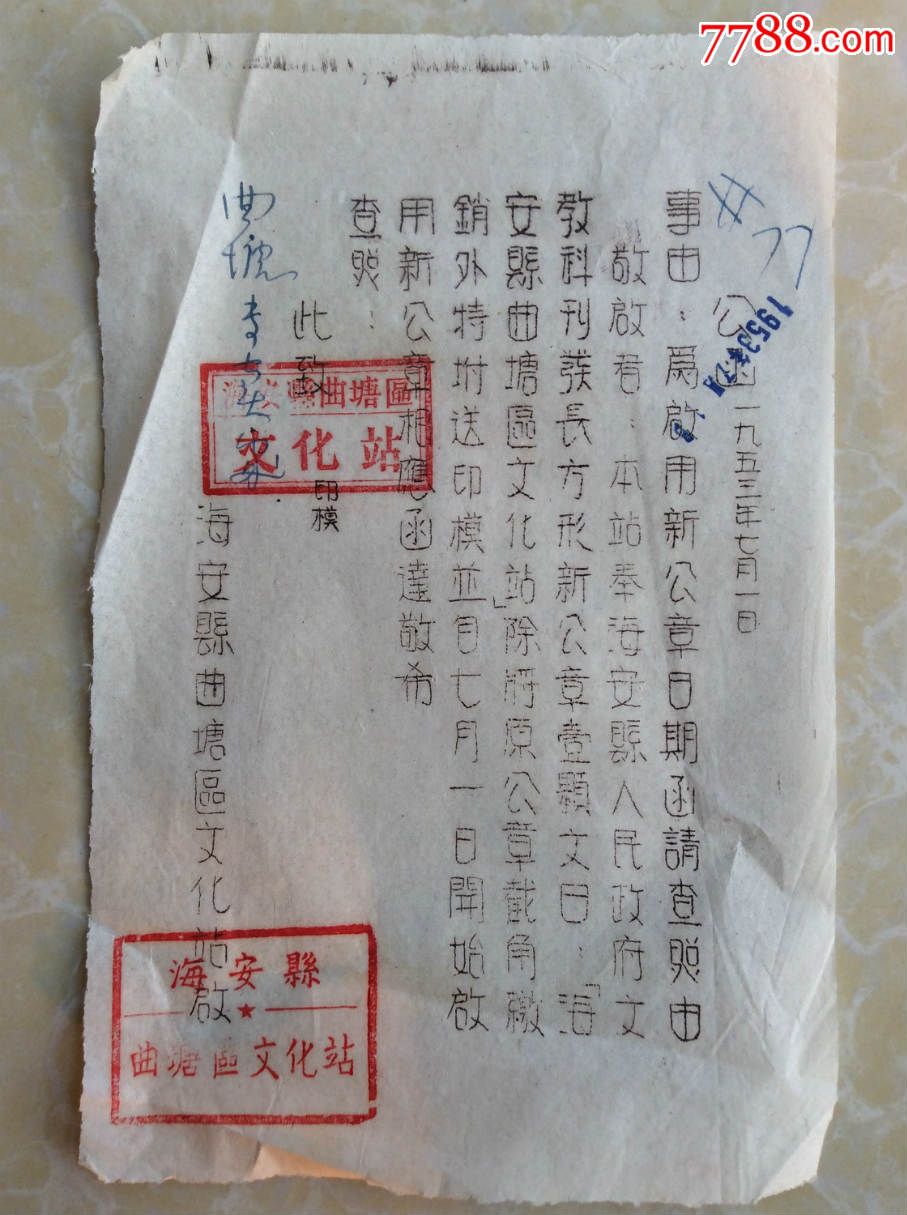 7788.com
#77
1953年7月
公函 一九五三年七月一日
事由：爲啟用新公章日期函請查照由
敬啟者：本站奉海安縣人民政府文
教科刊發長方形新公章壹顆文曰：「海
安縣曲塘區文化站」除將原公章截角繳
銷外特坿送印模並自七月一日開始啟
用新公章相應函達敬希
查照：
此致
印模
海安縣曲塘區
文化站
曲塘
海安縣曲塘區文化站啟
海安縣
曲塘區文化站